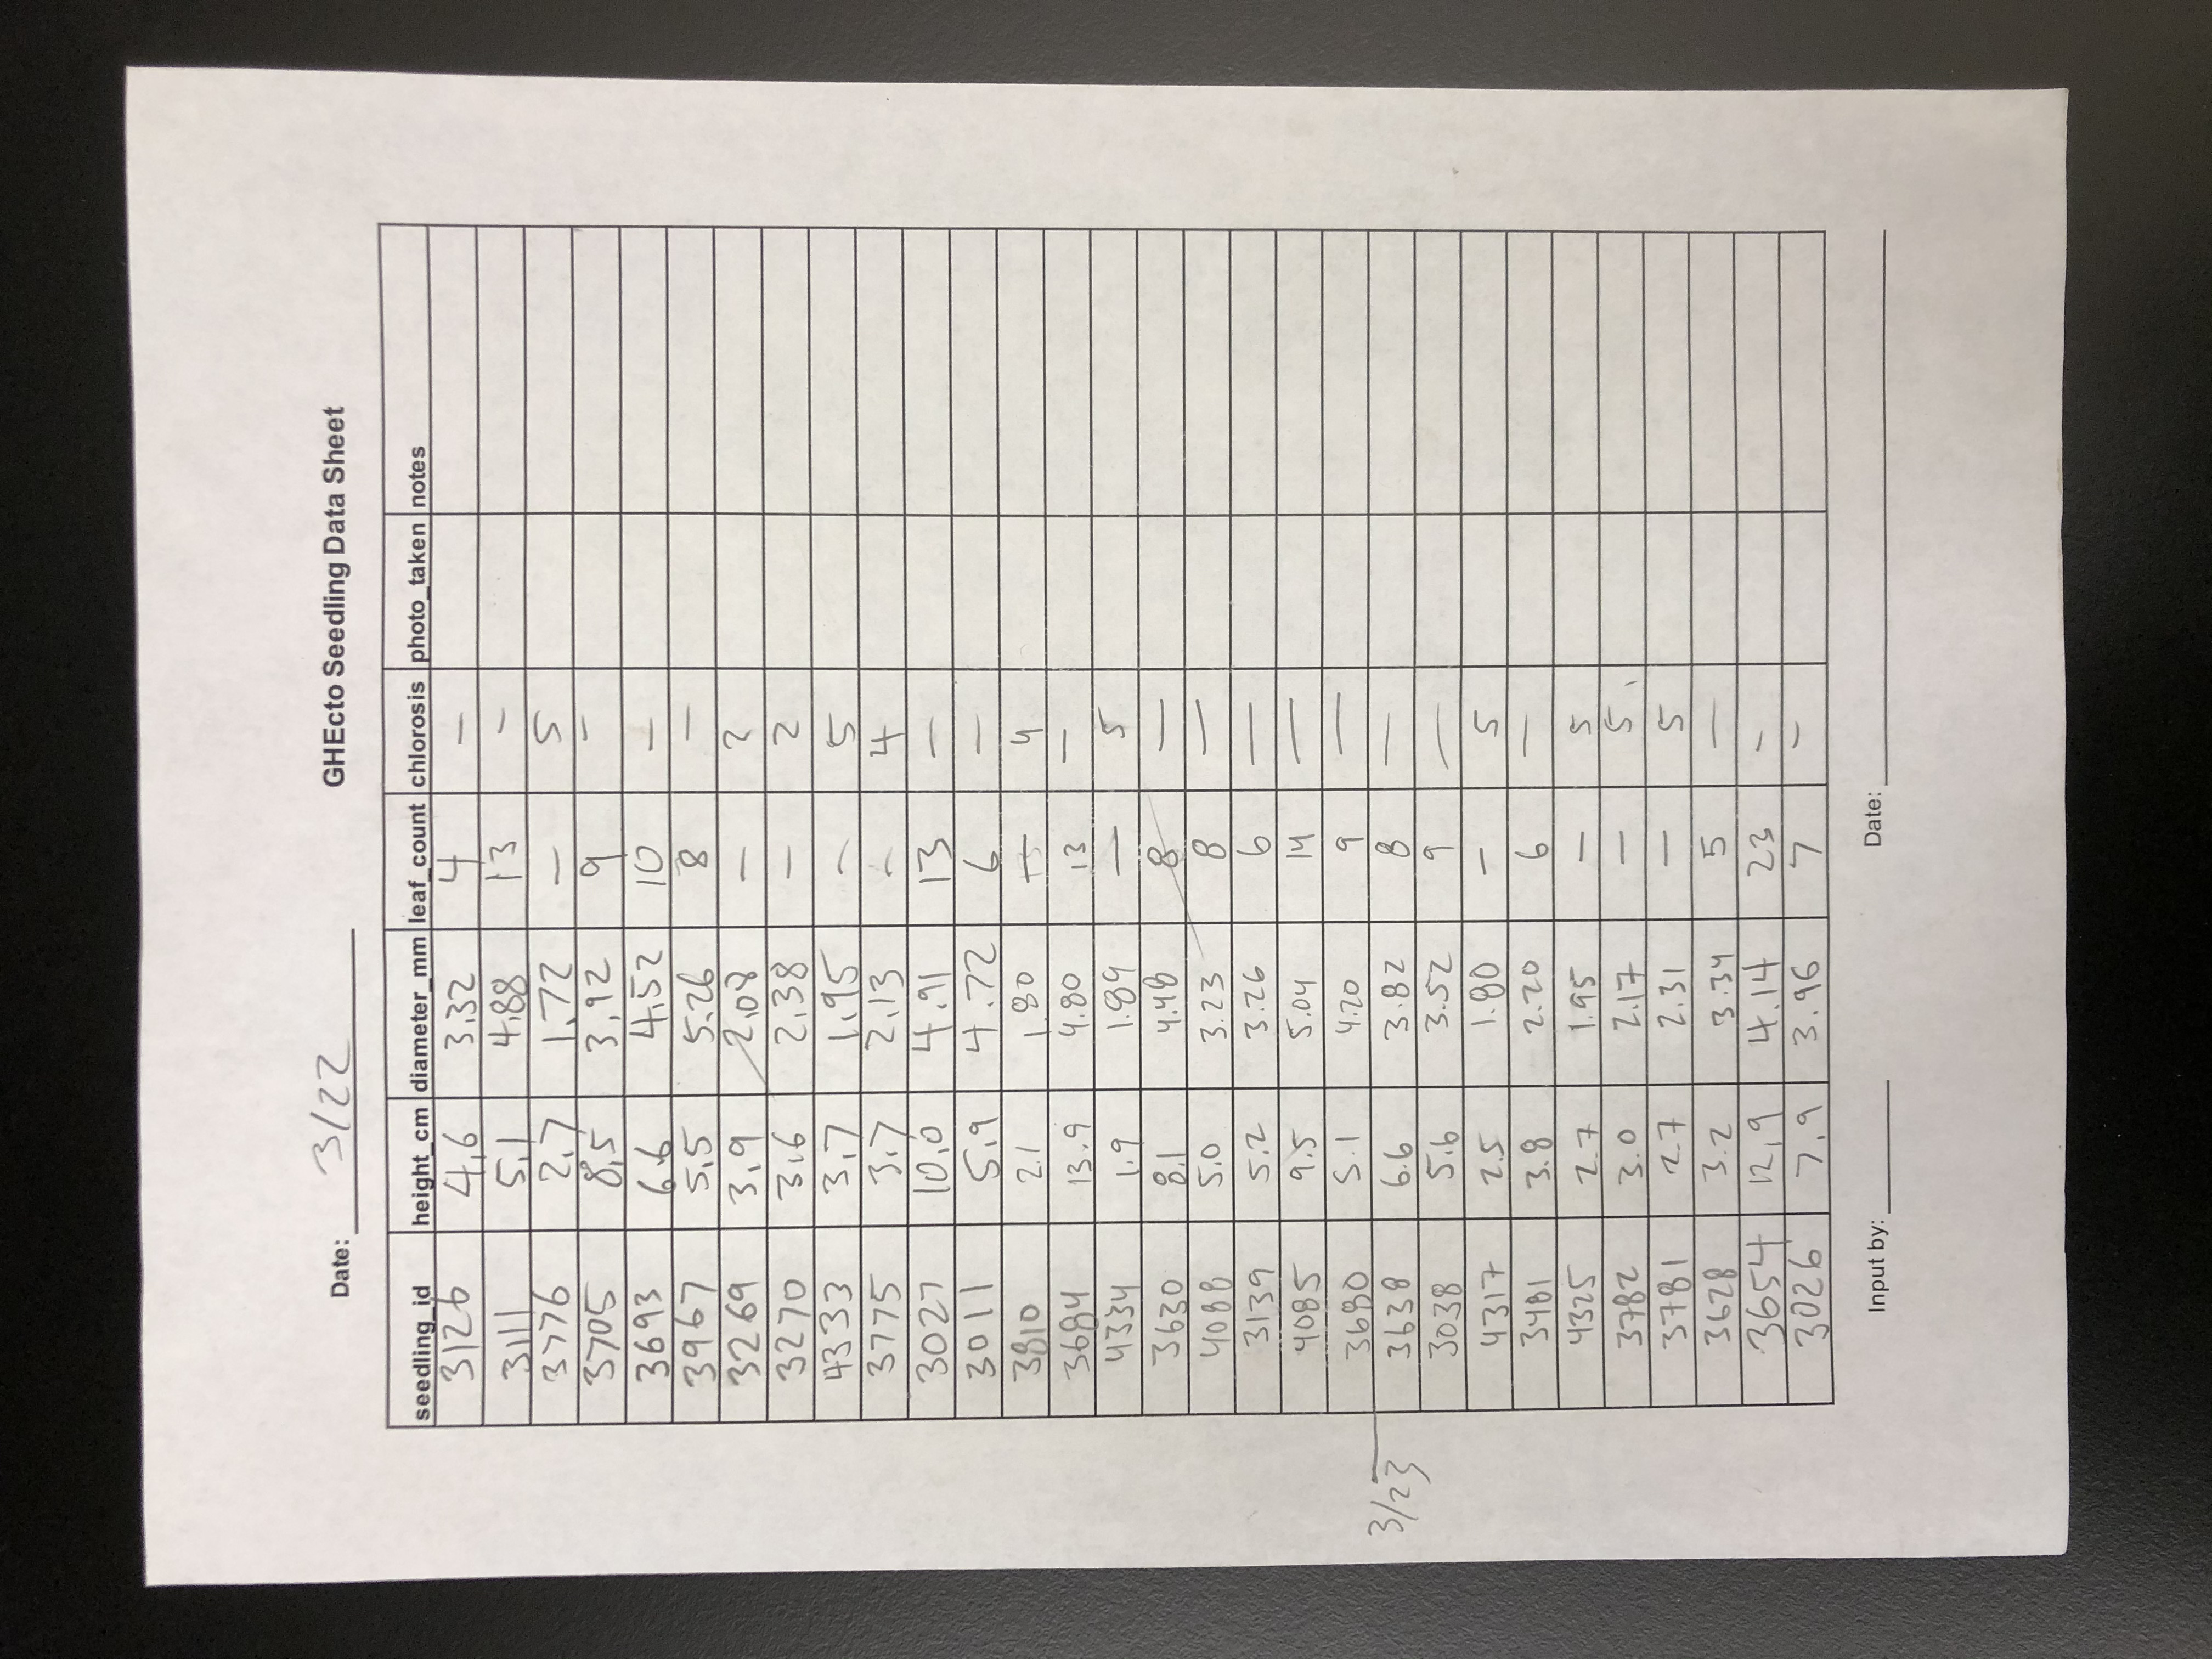 GHEcto Seedling Data Sheet
Date: 3/22
seedling_id height_cm diameter_mm leaf_count chlorosis photo_taken notes
3126 4.6 3.32 4 –
3111 5.1 4.88 13 –
3776 2.7 1.72 – 5
3705 8.5 3.92 9 –
3693 6.6 4.52 10 –
3967 5.5 5.26 8 –
3269 3.9 2.08 – 2
3270 3.6 2.38 – 2
4333 3.7 1.95 – 5
3775 3.7 2.13 – 4
3027 10.0 4.91 13 –
3011 5.9 4.72 6 –
3810 2.1 1.80 4
3684 13.9 4.80 13 –
4334 1.9 1.89 – 5
3630 8.1 4.48 8 –
4088 5.0 3.23 8 –
3139 5.2 3.26 6 –
4085 9.5 5.04 14 –
3680 5.1 4.20 9 –
3/23
3638 6.6 3.82 8 –
3038 5.6 3.52 9 –
4317 2.5 1.80 – 5
3481 3.8 2.20 6 –
4325 2.7 1.95 – 5
3782 3.0 2.17 – 5
3781 2.7 2.31 – 5
3628 3.2 3.34 5 –
3654 12.9 4.14 23 –
3026 7.9 3.96 7 –
Input by: Date: